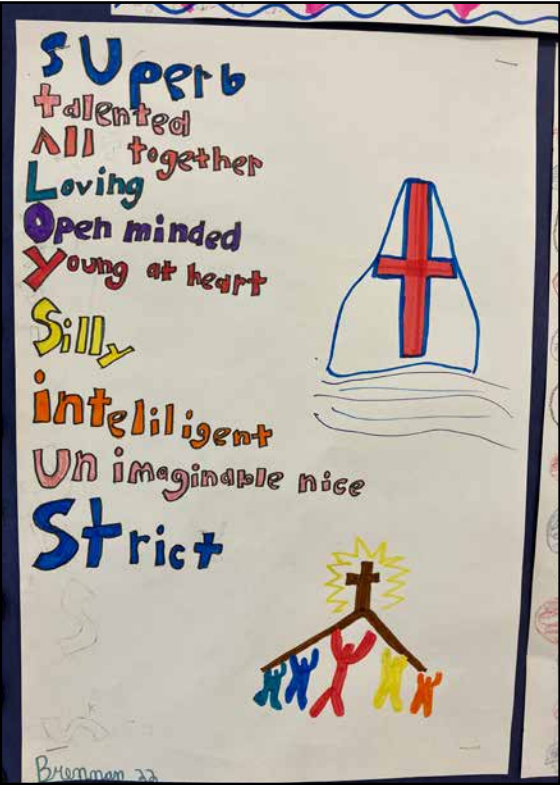 SUperb
talented
All together
Loving
Open minded
Young at heart
Silly
inteliligent
Un imaginable nice
Strict
Brennan 22